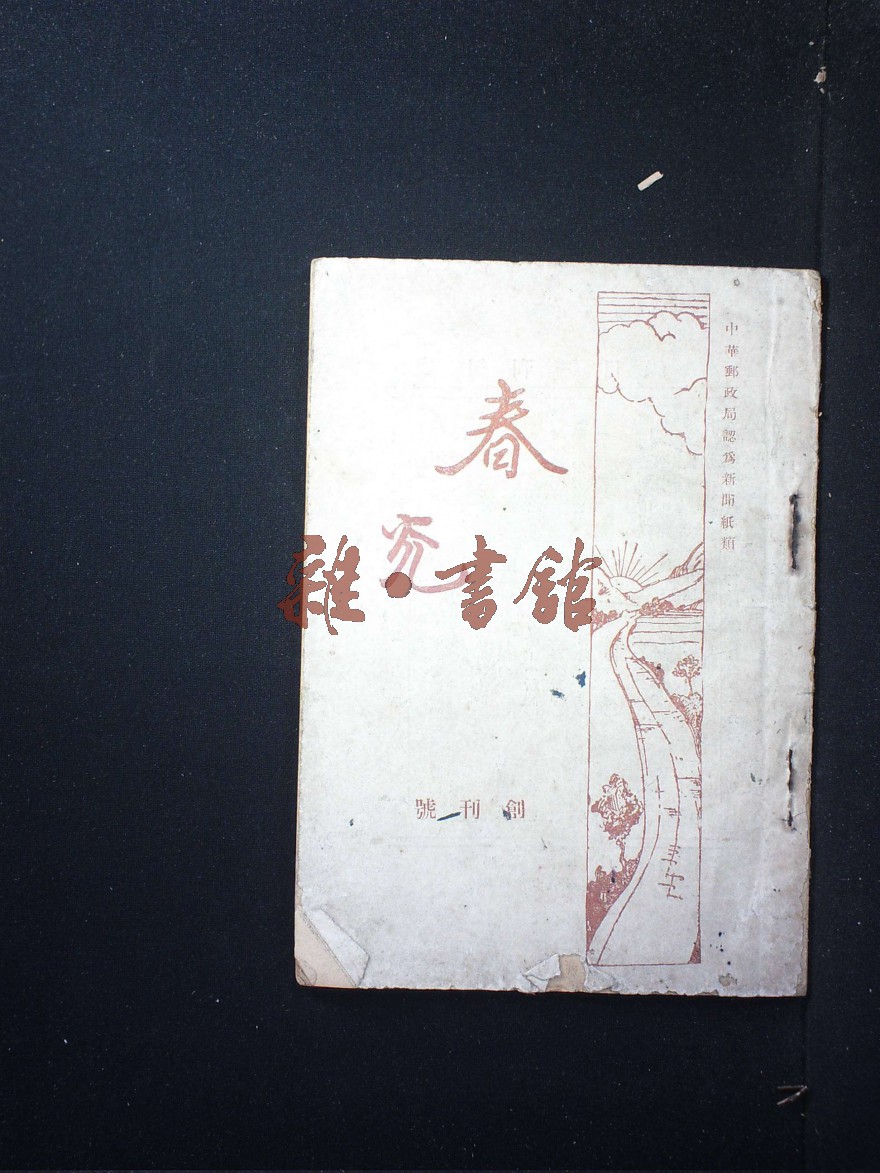 中華郵政局認為新聞紙類
春
雜·書館
創刊號